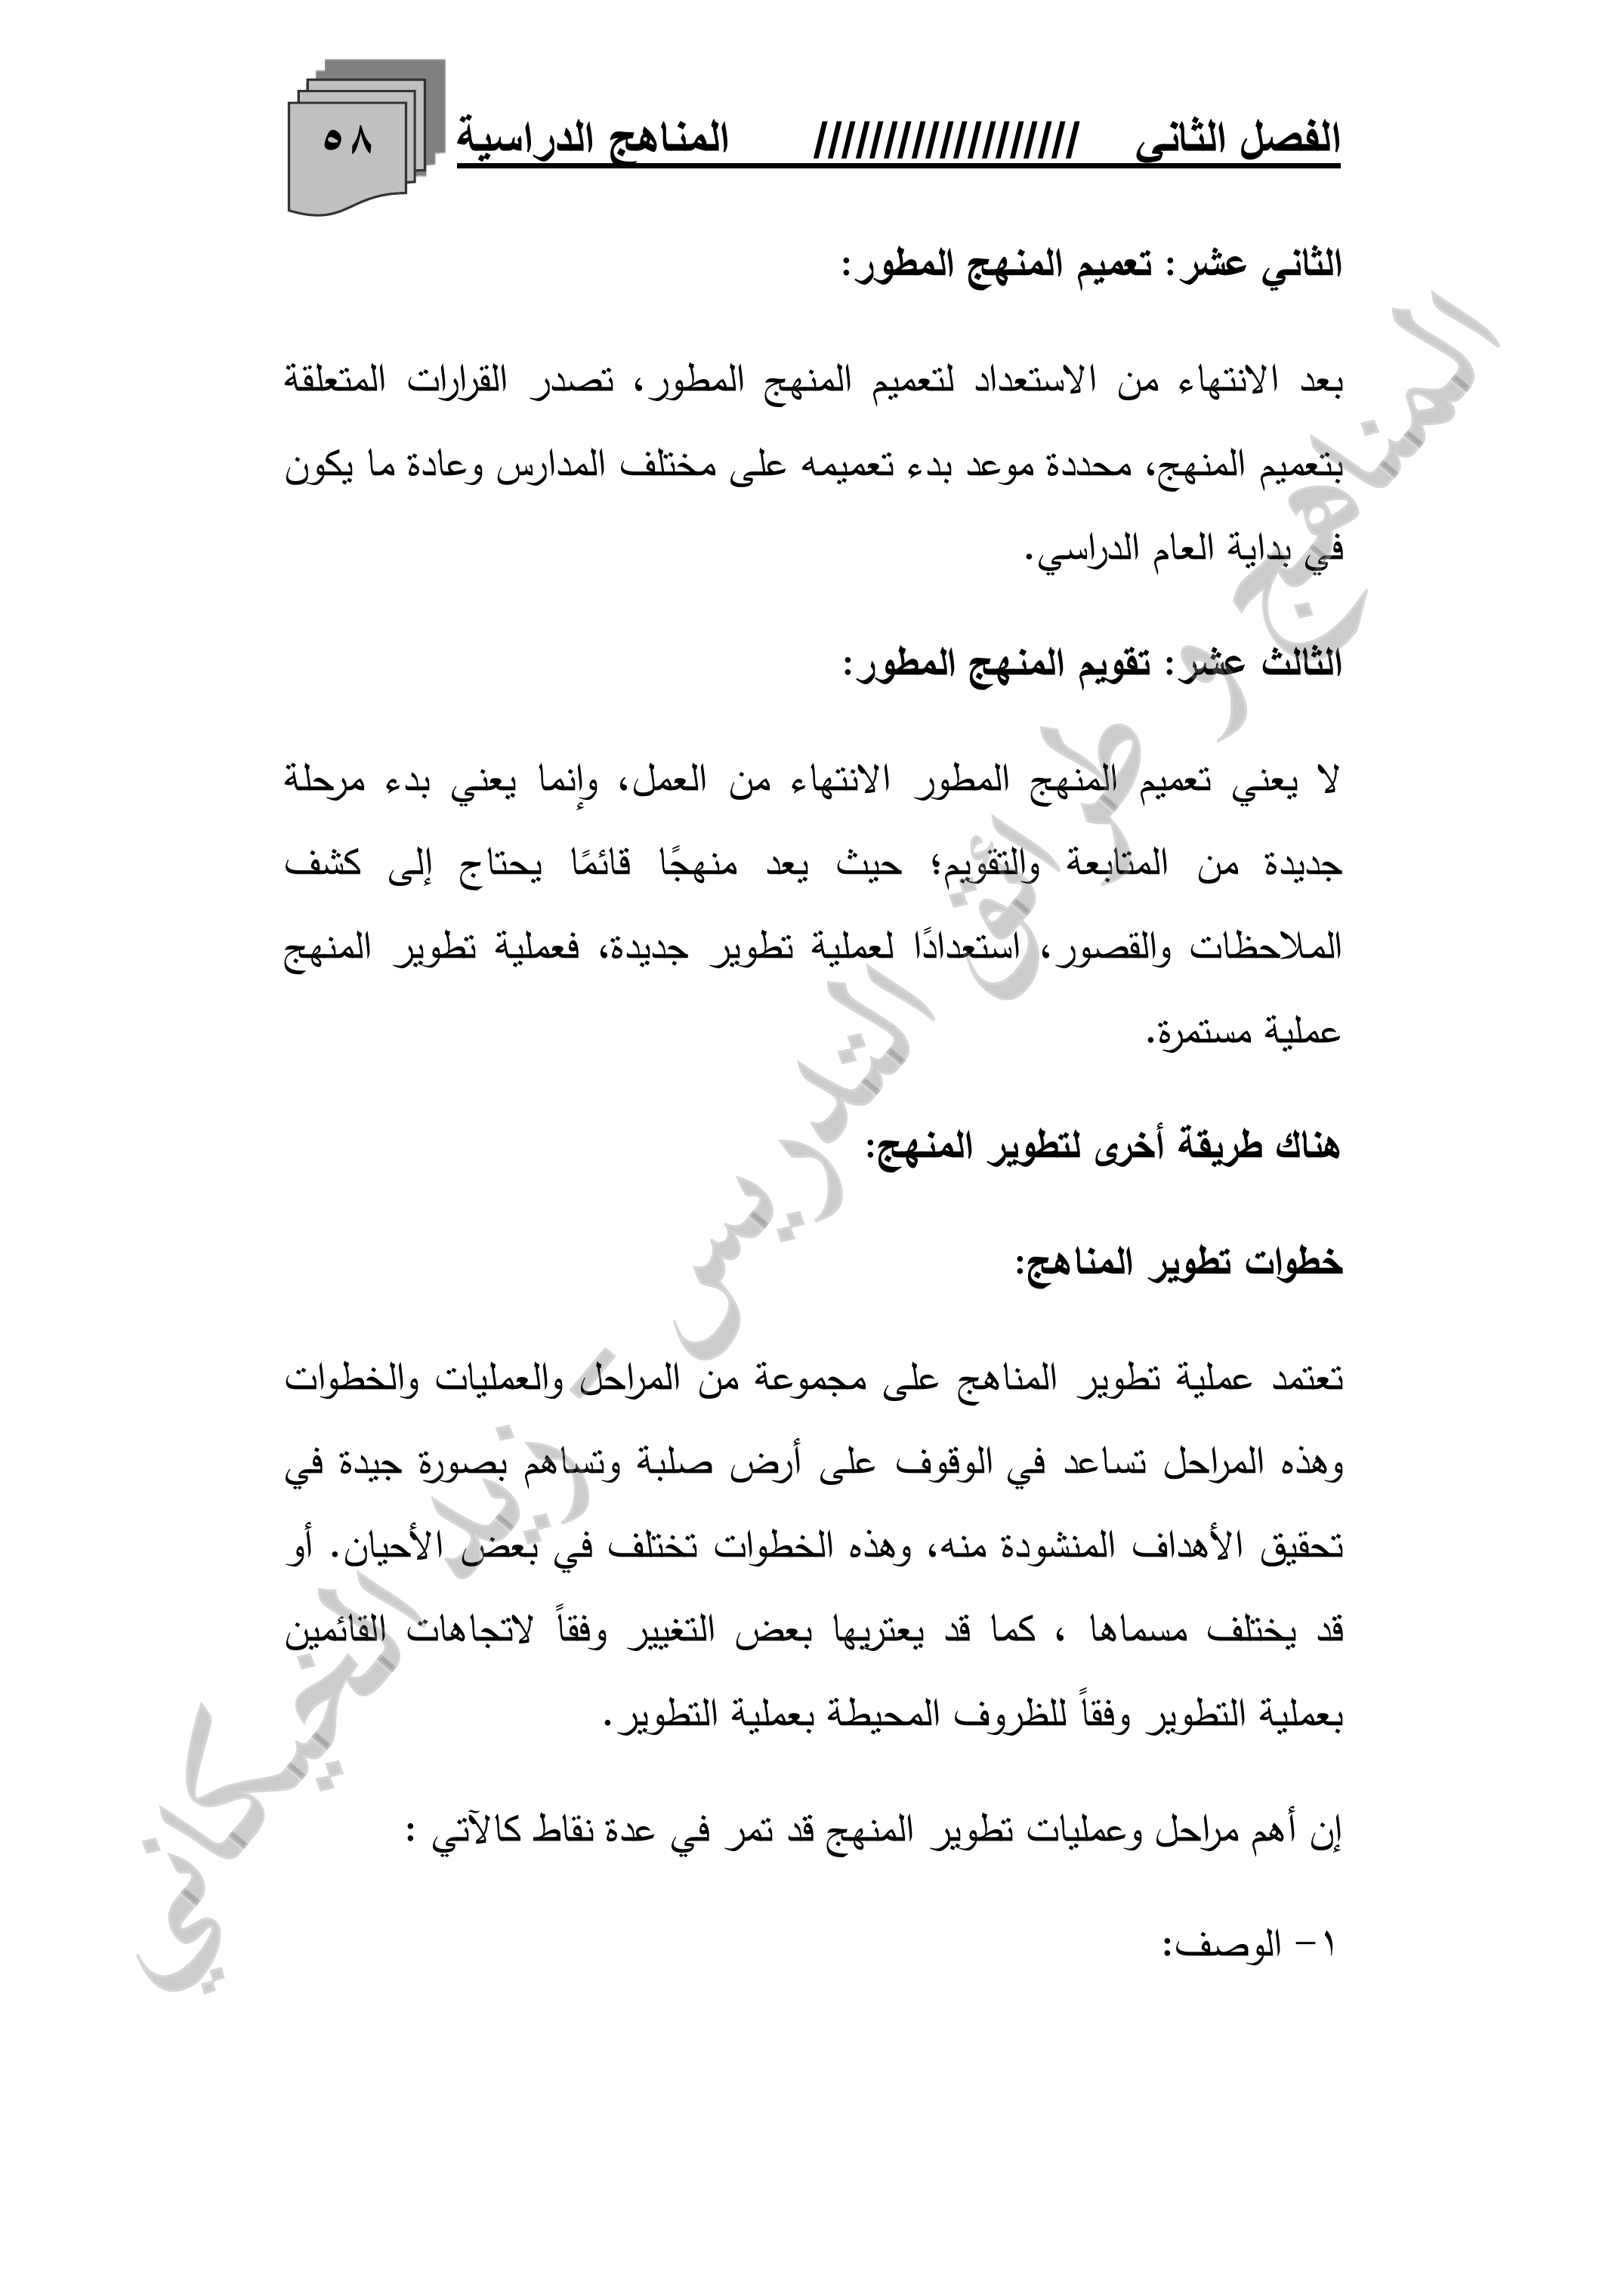 الفصل الثاني /////////////////// المناهج الدراسية ٥٨
الثاني عشر: تعميم المنهج المطور:
بعد الانتهاء من الاستعداد لتعميم المنهج المطور، تصدر القرارات المتعلقة
بتعميم المنهج، محددة موعد بدء تعميمه على مختلف المدارس وعادة ما يكون
في بداية العام الدراسي.
الثالث عشر: تقويم المنهج المطور:
لا يعني تعميم المنهج المطور الانتهاء من العمل، وإنما يعني بدء مرحلة
جديدة من المتابعة والتقويم؛ حيث يعد منهجًا قائمًا يحتاج إلى كشف
الملاحظات والقصور، استعدادًا لعملية تطوير جديدة، فعملية تطوير المنهج
عملية مستمرة.
هناك طريقة أخرى لتطوير المنهج:
خطوات تطوير المناهج:
تعتمد عملية تطوير المناهج على مجموعة من المراحل والعمليات والخطوات
وهذه المراحل تساعد في الوقوف على أرض صلبة وتساهم بصورة جيدة في
تحقيق الأهداف المنشودة منه، وهذه الخطوات تختلف في بعض الأحيان. أو
قد يختلف مسماها ، كما قد يعتريها بعض التغيير وفقاً لاتجاهات القائمين
بعملية التطوير وفقاً للظروف المحيطة بعملية التطوير.
إن أهم مراحل وعمليات تطوير المنهج قد تمر في عدة نقاط كالآتي :
١- الوصف:
المناهج و طرائق التدريس - زيد الخيكاني